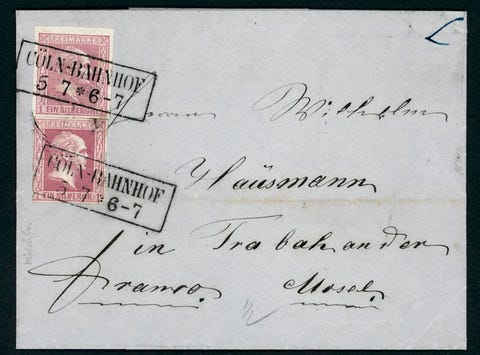 FREIMARKE
CÖLN-BAHNHOF
5 7 * 6-7
1 EIN SILBERGR.
FREIMARKE
CÖLN-BAHNHOF
5 7 * 6-7
1 EIN SILBERGR.
Herrn Wilhelm
Haüsmann
in Trabak an der
franco. Mosel